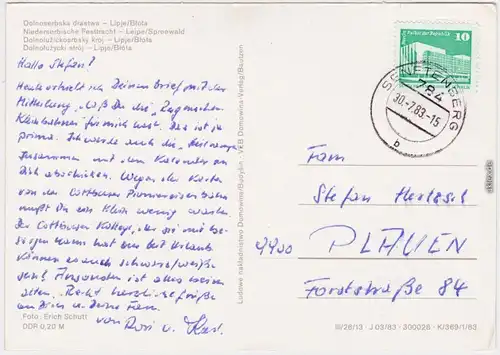 Dolnoserbska drastwa – Lipje/Błota
Niedersorbische Festtracht – Leipe/Spreewald
Dolnolužickosrbský kroj – Lipje/Błota
Dolnołużycki strój – Lipje/Błota
Hallo Stefan!
Heute erhielt ich Deinen Brief mit der
Mitteilung, daß Du die
für mich hast. Das ist ja
prima. Ich werde auch die
zusammen mit dem Kalender an
Dich abschicken. Wegen der Karten
von der Cottbuser Pioniereisenbahn
mußt Du ein klein wenig warten.
Der Cottbuser Kollege, der sie mir be-
sorgen kann hat zur Zeit Urlaub
können es auch schwarz/weiße
sein? Ansonsten ist alles beim
alten. Recht herzliche Grüße
an Dich u. Deine Frau
von Rosi u. Karl
Foto: Erich Schutt
DDR 0,20 M
Ludowe nakładnistwo Domowina/Budyšin · VEB Domowina-Verlag/Bautzen
10
SENFTENBERG
784
30.-7.83-15
b
Fam
Stefan
9900 PLAUEN
Forststraße 84
III/26/13 J 03/83 300026 K/369/1/83